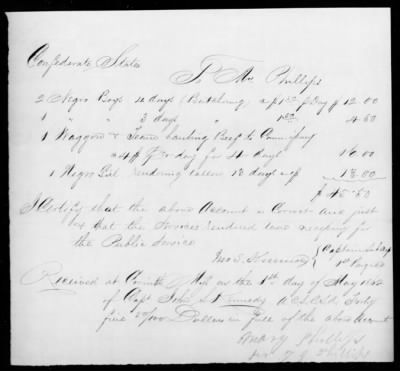 Confederate States
To Mrs Phillips
2 Negro Boys 12 days (Butchering) $12.00
1 " " 3 days " 1.50 4.50
1 Waggon & Team hauling Beef to Commissary
a 4 $ pr day for 4 days 16.00
1 Negro Girl rendering tallow 13 days 13.00
$45.50
I Certify that the above Account is Correct and just
& that the Services rendered were necessary for
the Public Service
Jno S. Kennedy
Received at Corinth Miss on the 1st day of May 1862
of Capt John S Kennedy A.C.S. Forty
five 50/100 Dollars in full of the above Account
Mary Phillips